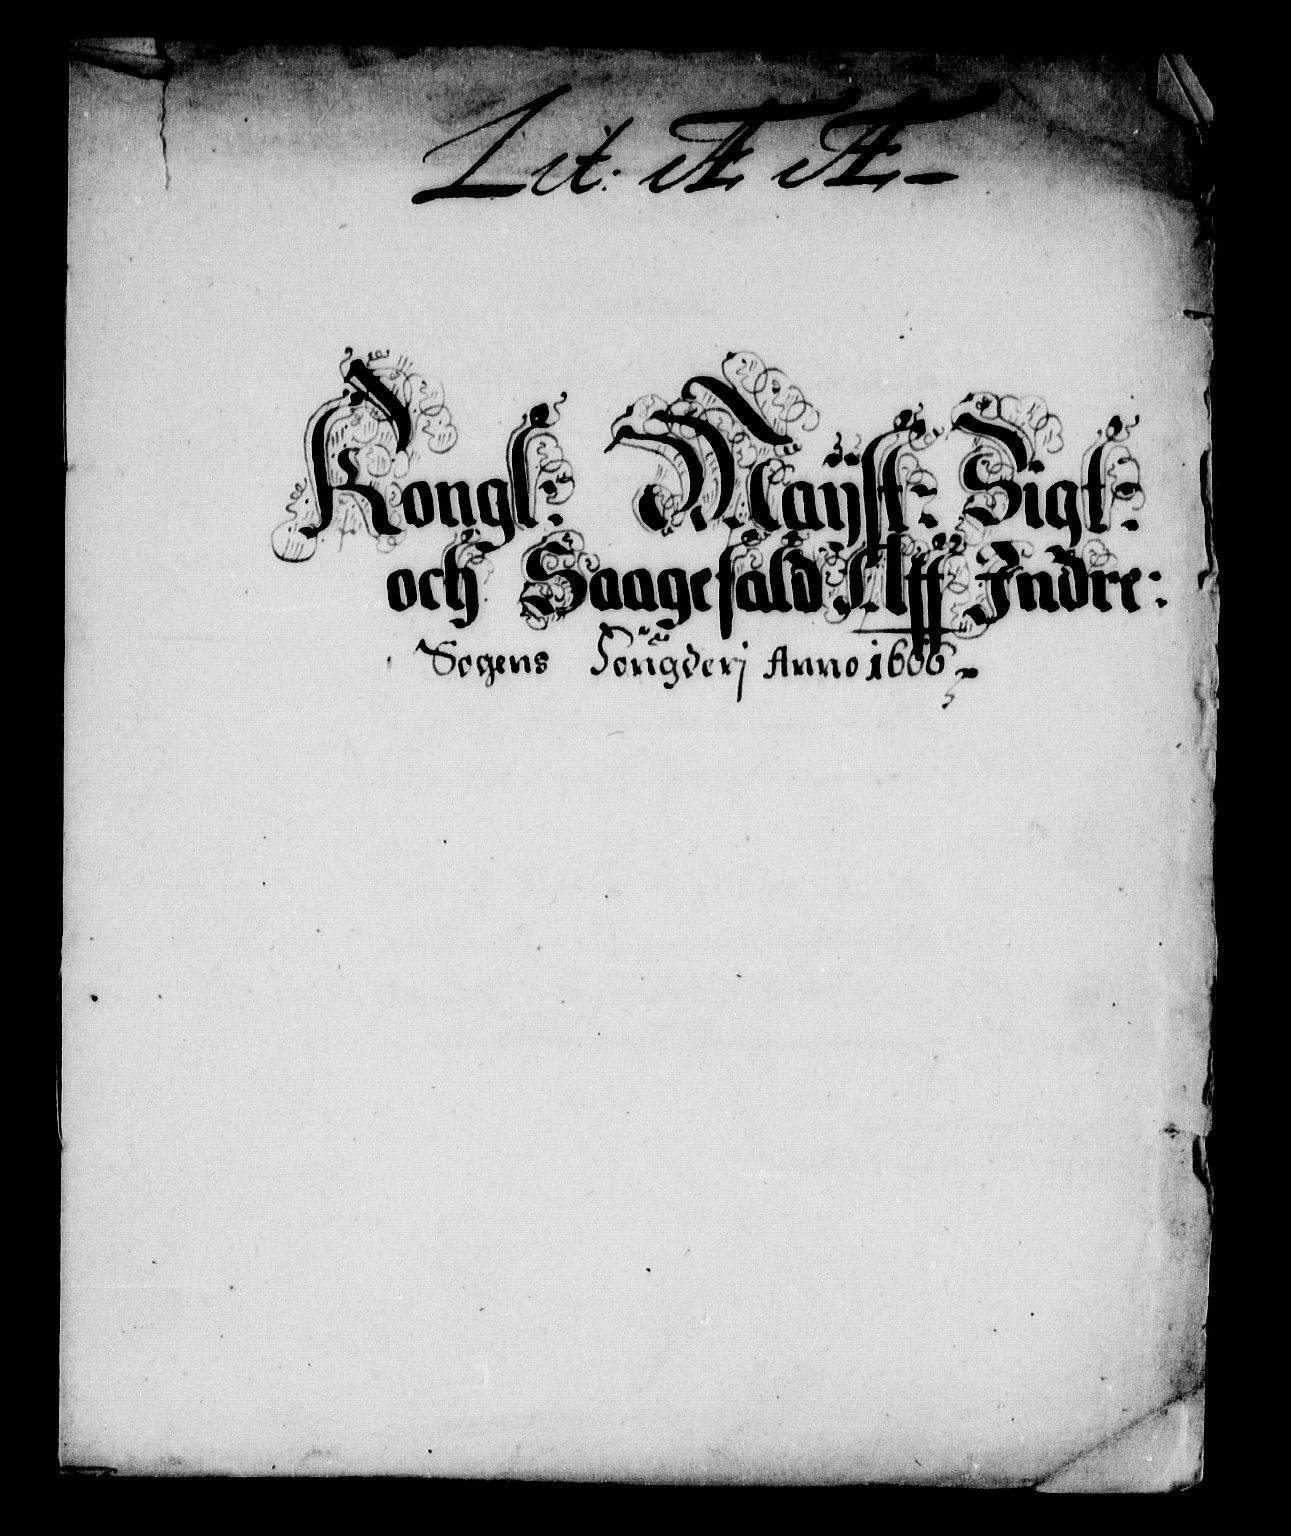 Lit: Æ Æ –
Kongl: Maÿst: Sigt:
och Saagefald Aff Indre:
Sogens Fougderj Anno 1666